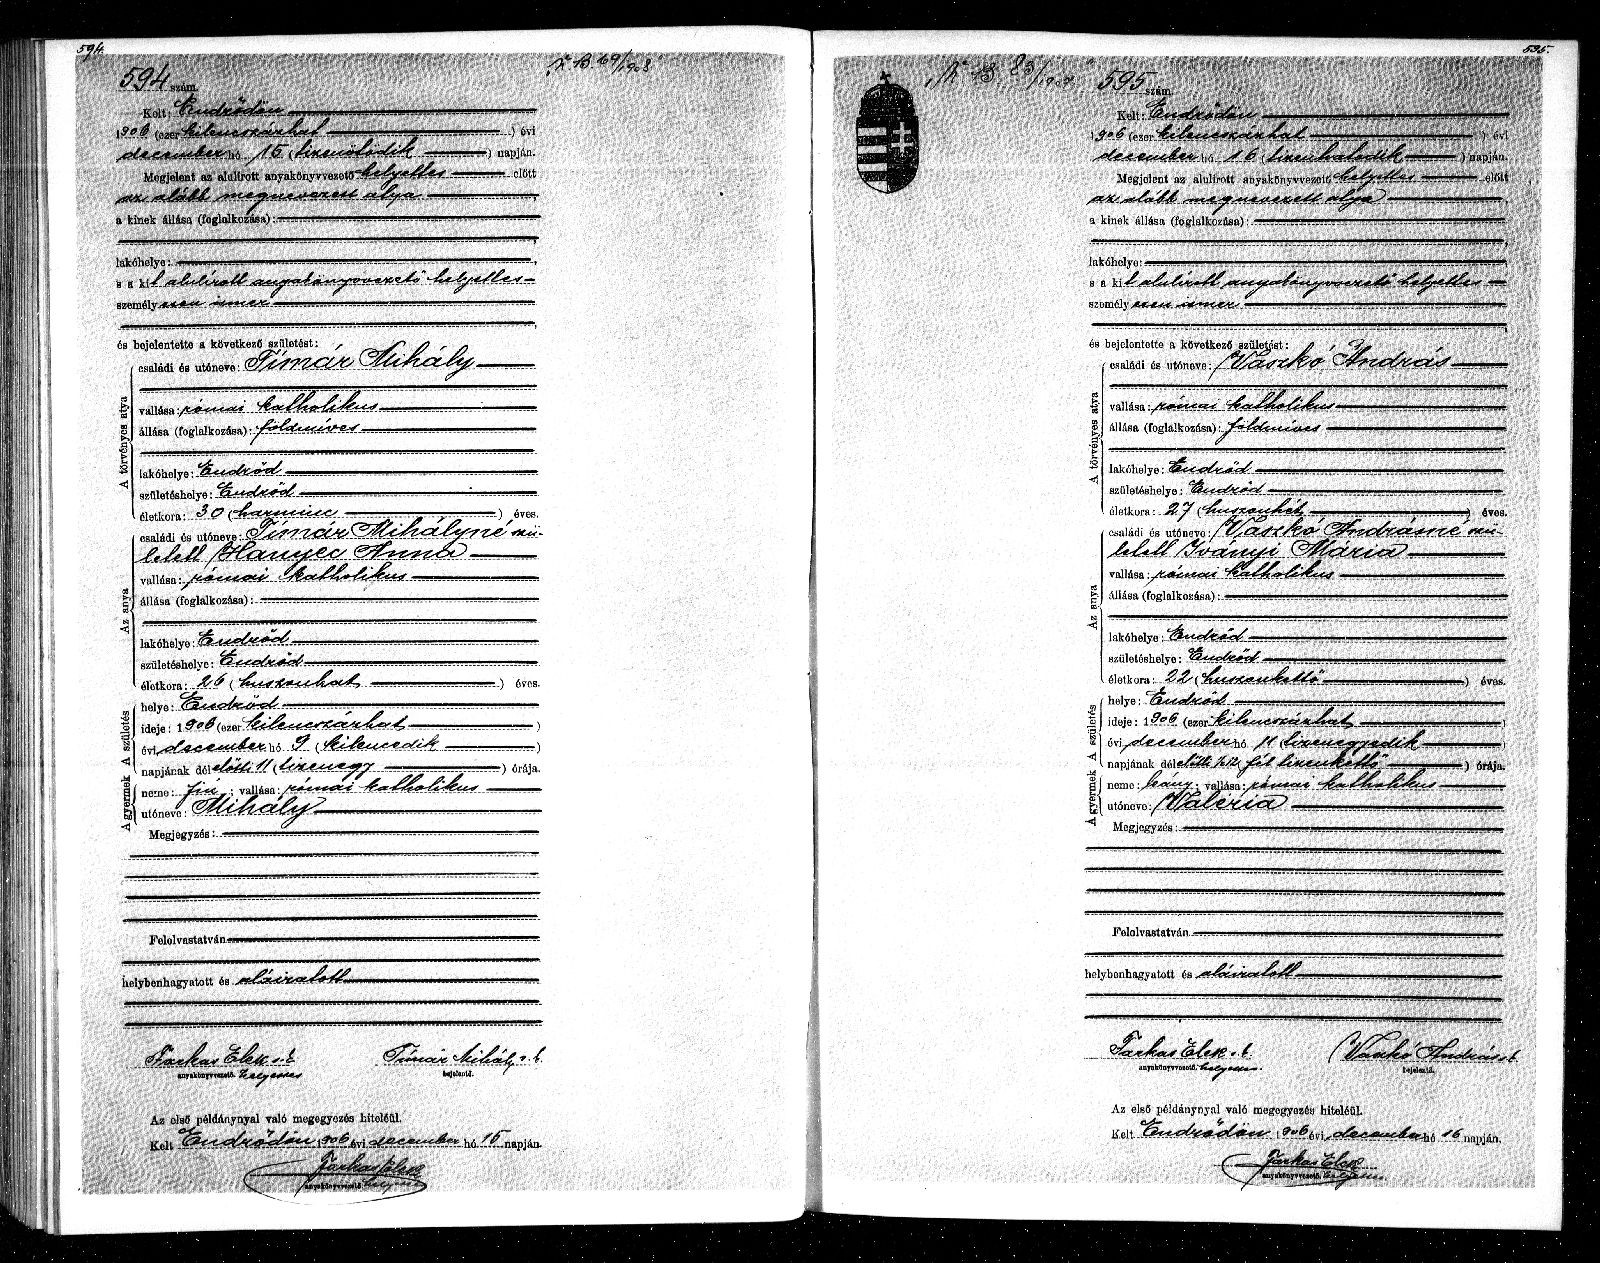 594.
594 szám.
Kelt: Endrődön
1906 (ezer kilenczszázhat ) évi
december hó 15 (tizenötödik ) napján.
Megjelent az alulirott anyakönyvvezető helyettes előtt
az alább megnevezett atya ,
a kinek állása (foglalkozása):
lakóhelye:
s a kit alulírott anyakönyvvezető helyettes
személyesen ismer
és bejelentette a következő születést:
A törvényes atya
családi és utóneve: Tímár Mihály
vallása: római katholikus
állása (foglalkozása): földmíves
lakóhelye: Endrőd
születéshelye: Endrőd
életkora: 30 (harminc ) éves.
Az anya
családi és utóneve: Tímár Mihályné szü-
letett Hanyec Anna
vallása: római katholikus
állása (foglalkozása):
lakóhelye: Endrőd
születéshelye: Endrőd
életkora: 26 (huszonhat ) éves.
A gyermek A születés
helye: Endrőd
ideje: 1906 (ezer kilenczszázhat )
évi december hó 9 (kilencedik )
napjának délelőtti 11 (tizenegy ) órája.
neme: fiú ; vallása: római katholikus
utóneve: Mihály
Megjegyzés:
Felolvastatván
helybenhagyatott és aláíratott
Farkas Elek s. k. Tímár Mihály s. k.
anyakönyvvezető. helyettes bejelentő.
Az első példánynyal való megegyezés hiteléül.
Kelt Endrődön 1906 évi december hó 15 napján.
Farkas Elek
anyakönyvvezető. helyettes
595.
595 szám.
Kelt: Endrődön
1906 (ezer kilenczszázhat ) évi
december hó 16 (tizenhatodik ) napján.
Megjelent az alulirott anyakönyvvezető helyettes előtt
az alább megnevezett atya ,
a kinek állása (foglalkozása):
lakóhelye:
s a kit alulírott anyakönyvvezető helyettes
személyesen ismer
és bejelentette a következő születést:
A törvényes atya
családi és utóneve: Vaszkó András
vallása: római katholikus
állása (foglalkozása): földmíves
lakóhelye: Endrőd
születéshelye: Endrőd
életkora: 27 (huszonhét ) éves.
Az anya
családi és utóneve: Vaszkó Andrásné szü-
letett Iványi Mária
vallása: római katholikus
állása (foglalkozása):
lakóhelye: Endrőd
születéshelye: Endrőd
életkora: 22 (huszonkettő ) éves.
A gyermek A születés
helye: Endrőd
ideje: 1906 (ezer kilenczszázhat )
évi december hó 11 (tizenegyedik )
napjának délelőtti ½12 (fél tizenkettő ) órája.
neme: leány ; vallása: római katholikus
utóneve: Valéria
Megjegyzés:
Felolvastatván
helybenhagyatott és aláíratott
Farkas Elek s. k. Vaszkó András s. k.
anyakönyvvezető. helyettes. bejelentő.
Az első példánynyal való megegyezés hiteléül.
Kelt Endrődön 1906 évi december hó 16 napján.
Farkas Elek
anyakönyvvezető. helyettes.